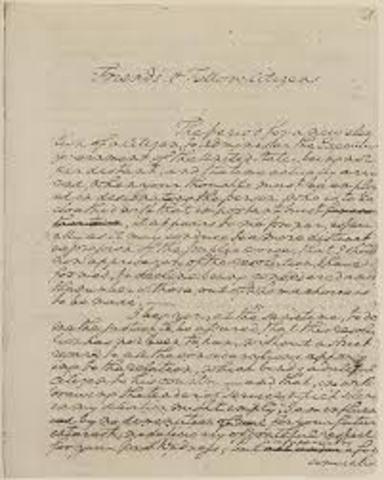 Friends & Fellow Citizens
The period for a new elec-
tion of a Citizen, to administer the Executive
government of the United States, being not
very distant, and the time actually arri-
ved, when your thoughts must be employ-
ed in designating the person, who is to be
cloathed with that important trust
it appears to me proper, especi-
ally as it may conduce to a more distinct
expression of the public voice, that I should
now apprise you of the resolution I have
formed, to decline being considered among
the number of those, out of whom a choice is
to be made.
I beg you, at the same time, to do
me the justice to be assured, that this resolu-
tion has not been taken, without a strict
regard to all the considerations appertain-
ing to the relation, which binds a dutiful
Citizen to his country and that, in with
drawing the tender of service which silence
in my situation might imply, I am influen-
ced by no diminution of zeal for your future
interest, no deficiency of grateful respect
for your past kindness; but